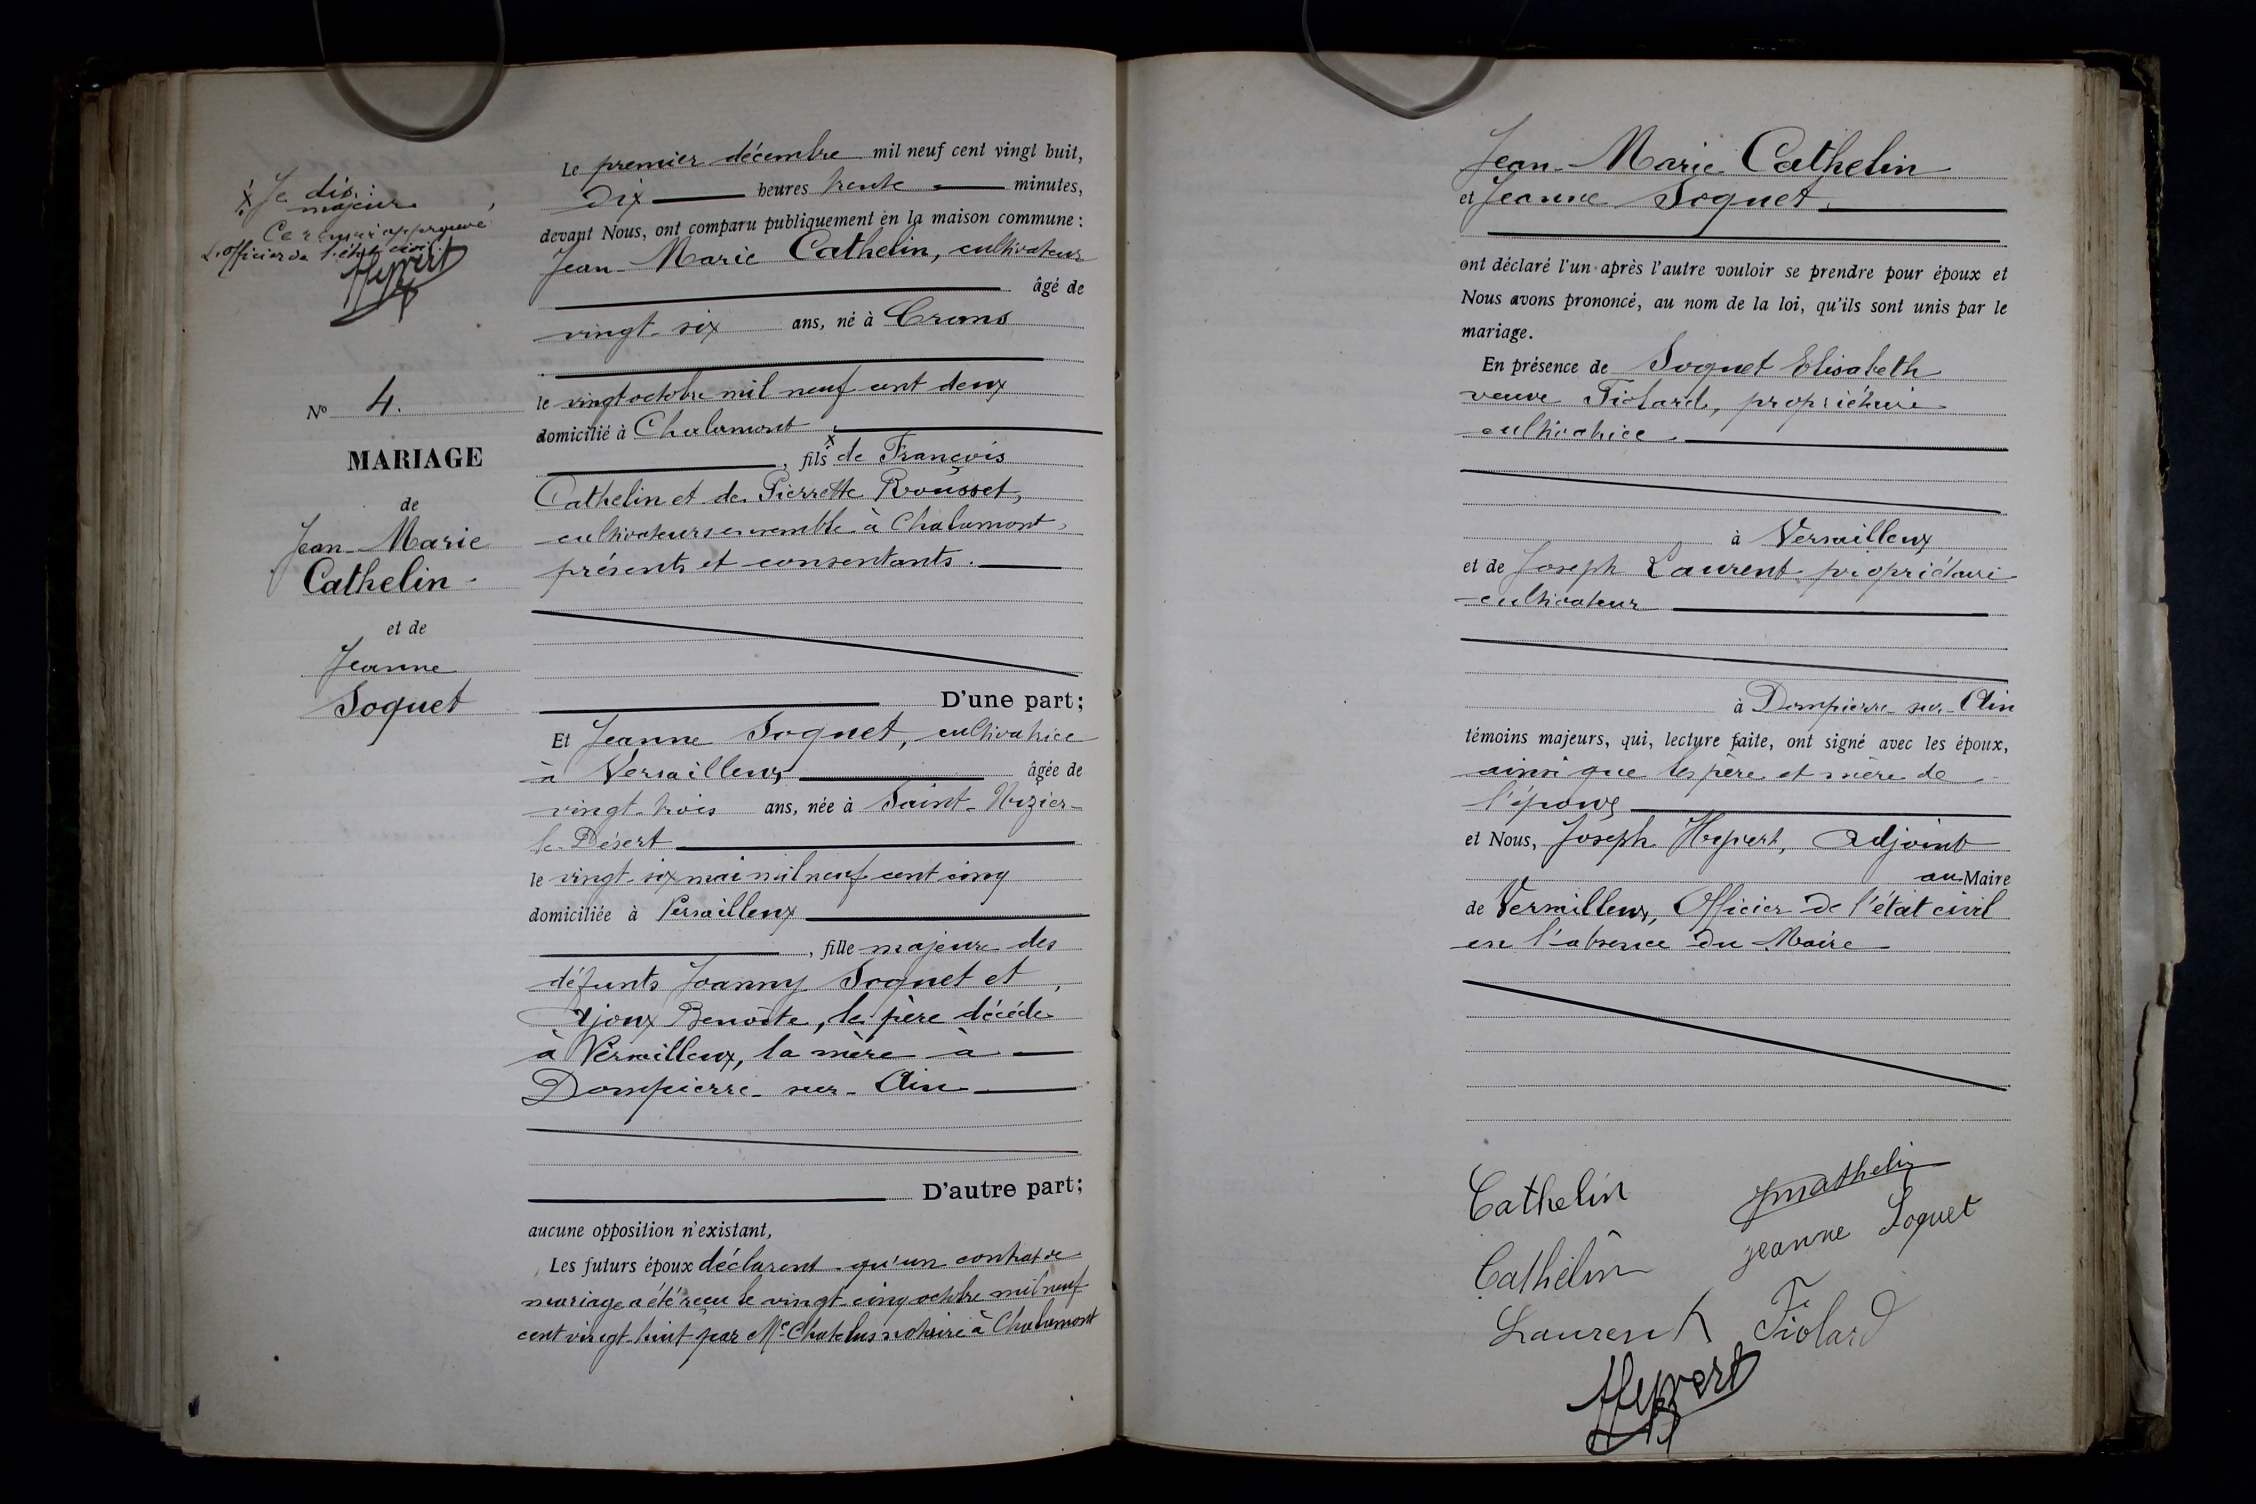 X Je dis :
majeur
Ce renvoi approuvé
L'officier de l'état civil.
Hyvert
N° 4.
MARIAGE
de
Jean-Marie
Cathelin
et de
Jeanne
Soquet
Le premier décembre mil neuf cent vingt huit,
Dix heures trente minutes,
devant Nous, ont comparu publiquement en la maison commune :
Jean-Marie Cathelin, cultivateur
âgé de
vingt-six ans, né à Crans
le vingt octobre mil neuf cent deux
domicilié à Chalamont
, fils X de François
Cathelin et de Pierrette Rousset,
cultivateurs ensemble à Chalamont,
présents et consentants.
D'une part;
Et Jeanne Soquet, cultivatrice
à Versailleux âgée de
vingt-trois ans, née à Saint-Nizier-
le-Désert
le vingt-six mai mil neuf cent cinq
domiciliée à Versailleux
, fille majeure des
défunts Joanny Soquet et
Ajoux Benoîte, le père décédé
à Versailleux, la mère à
Dompierre-sur-Ain
D'autre part;
aucune opposition n'existant,
Les futurs époux déclarent qu'un contrat de
mariage a été reçu le vingt-cinq octobre mil neuf
cent vingt-huit par Me Chatelus notaire à Chalamont
Jean-Marie Cathelin
et Jeanne Soquet
ont déclaré l'un après l'autre vouloir se prendre pour époux et
Nous avons prononcé, au nom de la loi, qu'ils sont unis par le
mariage.
En présence de Soquet Elisabeth
veuve Fiolard, propriétaire
cultivatrice
à Versailleux
et de Joseph Laurent propriétaire
cultivateur
à Dompierre-sur-Ain
témoins majeurs, qui, lecture faite, ont signé avec les époux,
ainsi que les père et mère de
l'époux
et Nous, Joseph Hyvert, Adjoint
au Maire
de Versailleux, Officier de l'état civil
en l'absence du Maire
Cathelin
Cathelin
Jeanne Soquet
Laurent
Fiolard
Hyvert